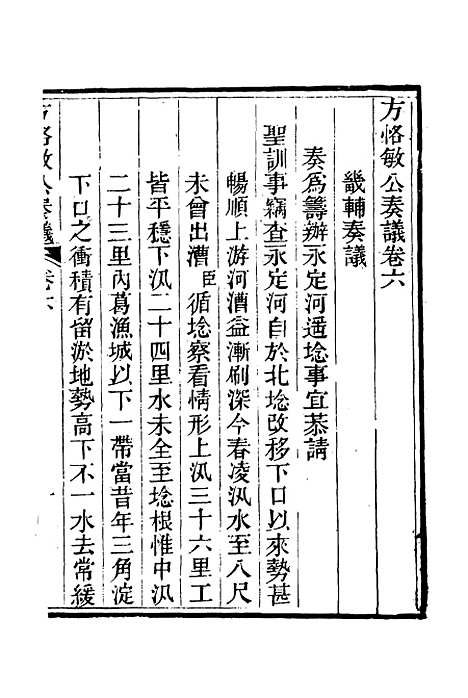 方恪敏公奏議卷六
畿輔奏議
奏爲籌辦永定河遥埝事宜恭請
聖訓事竊查永定河自於北埝改移下口以來勢甚
暢順上游河漕益漸刷深今春凌汛水至八尺
未曾出漕臣循埝察看情形上汛三十六里工
皆平穩下汛二十四里水未全至埝根惟中汛
二十三里內葛漁城以下一帶當昔年三角淀
下口之衝積有留淤地勢高下不一水去常緩
方恪敏公奏議 卷六 一